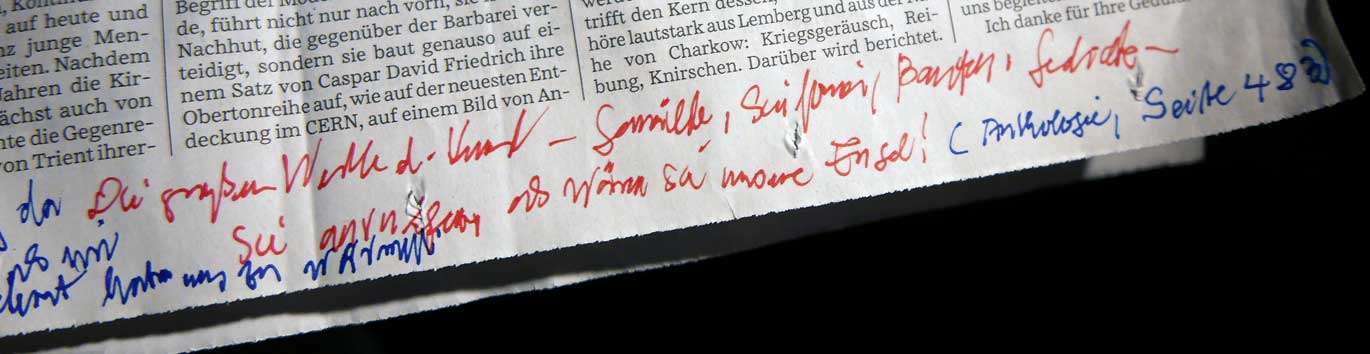 auf heute und
nz junge Men-
eiten. Nachdem
Jahren die Kir-
ächst auch von
nte die Gegenre-
von Trient ihrer-
de, führt nicht nur nach vorn, sie
Nachhut, die gegenüber der Barbarei ver-
teidigt, sondern sie baut genauso auf ei-
nem Satz von Caspar David Friedrich ihre
Obertonreihe auf, wie auf der neuesten Ent-
deckung im CERN, auf einem Bild von An-
trifft den Kern dessen,
höre lautstark aus Lemberg und aus der
he von Charkow: Kriegsgeräusch, Rei-
bung, Knirschen. Darüber wird berichtet.
uns begleiten
Ich danke für Ihre Geduld
Die großen Werke d. Kunst – Gemälde, Sinfonien, Bauten, Gedichte –
Sie anrufen, als wären sie unsere Enkel! (Anthologie, Seite 482)
als wir